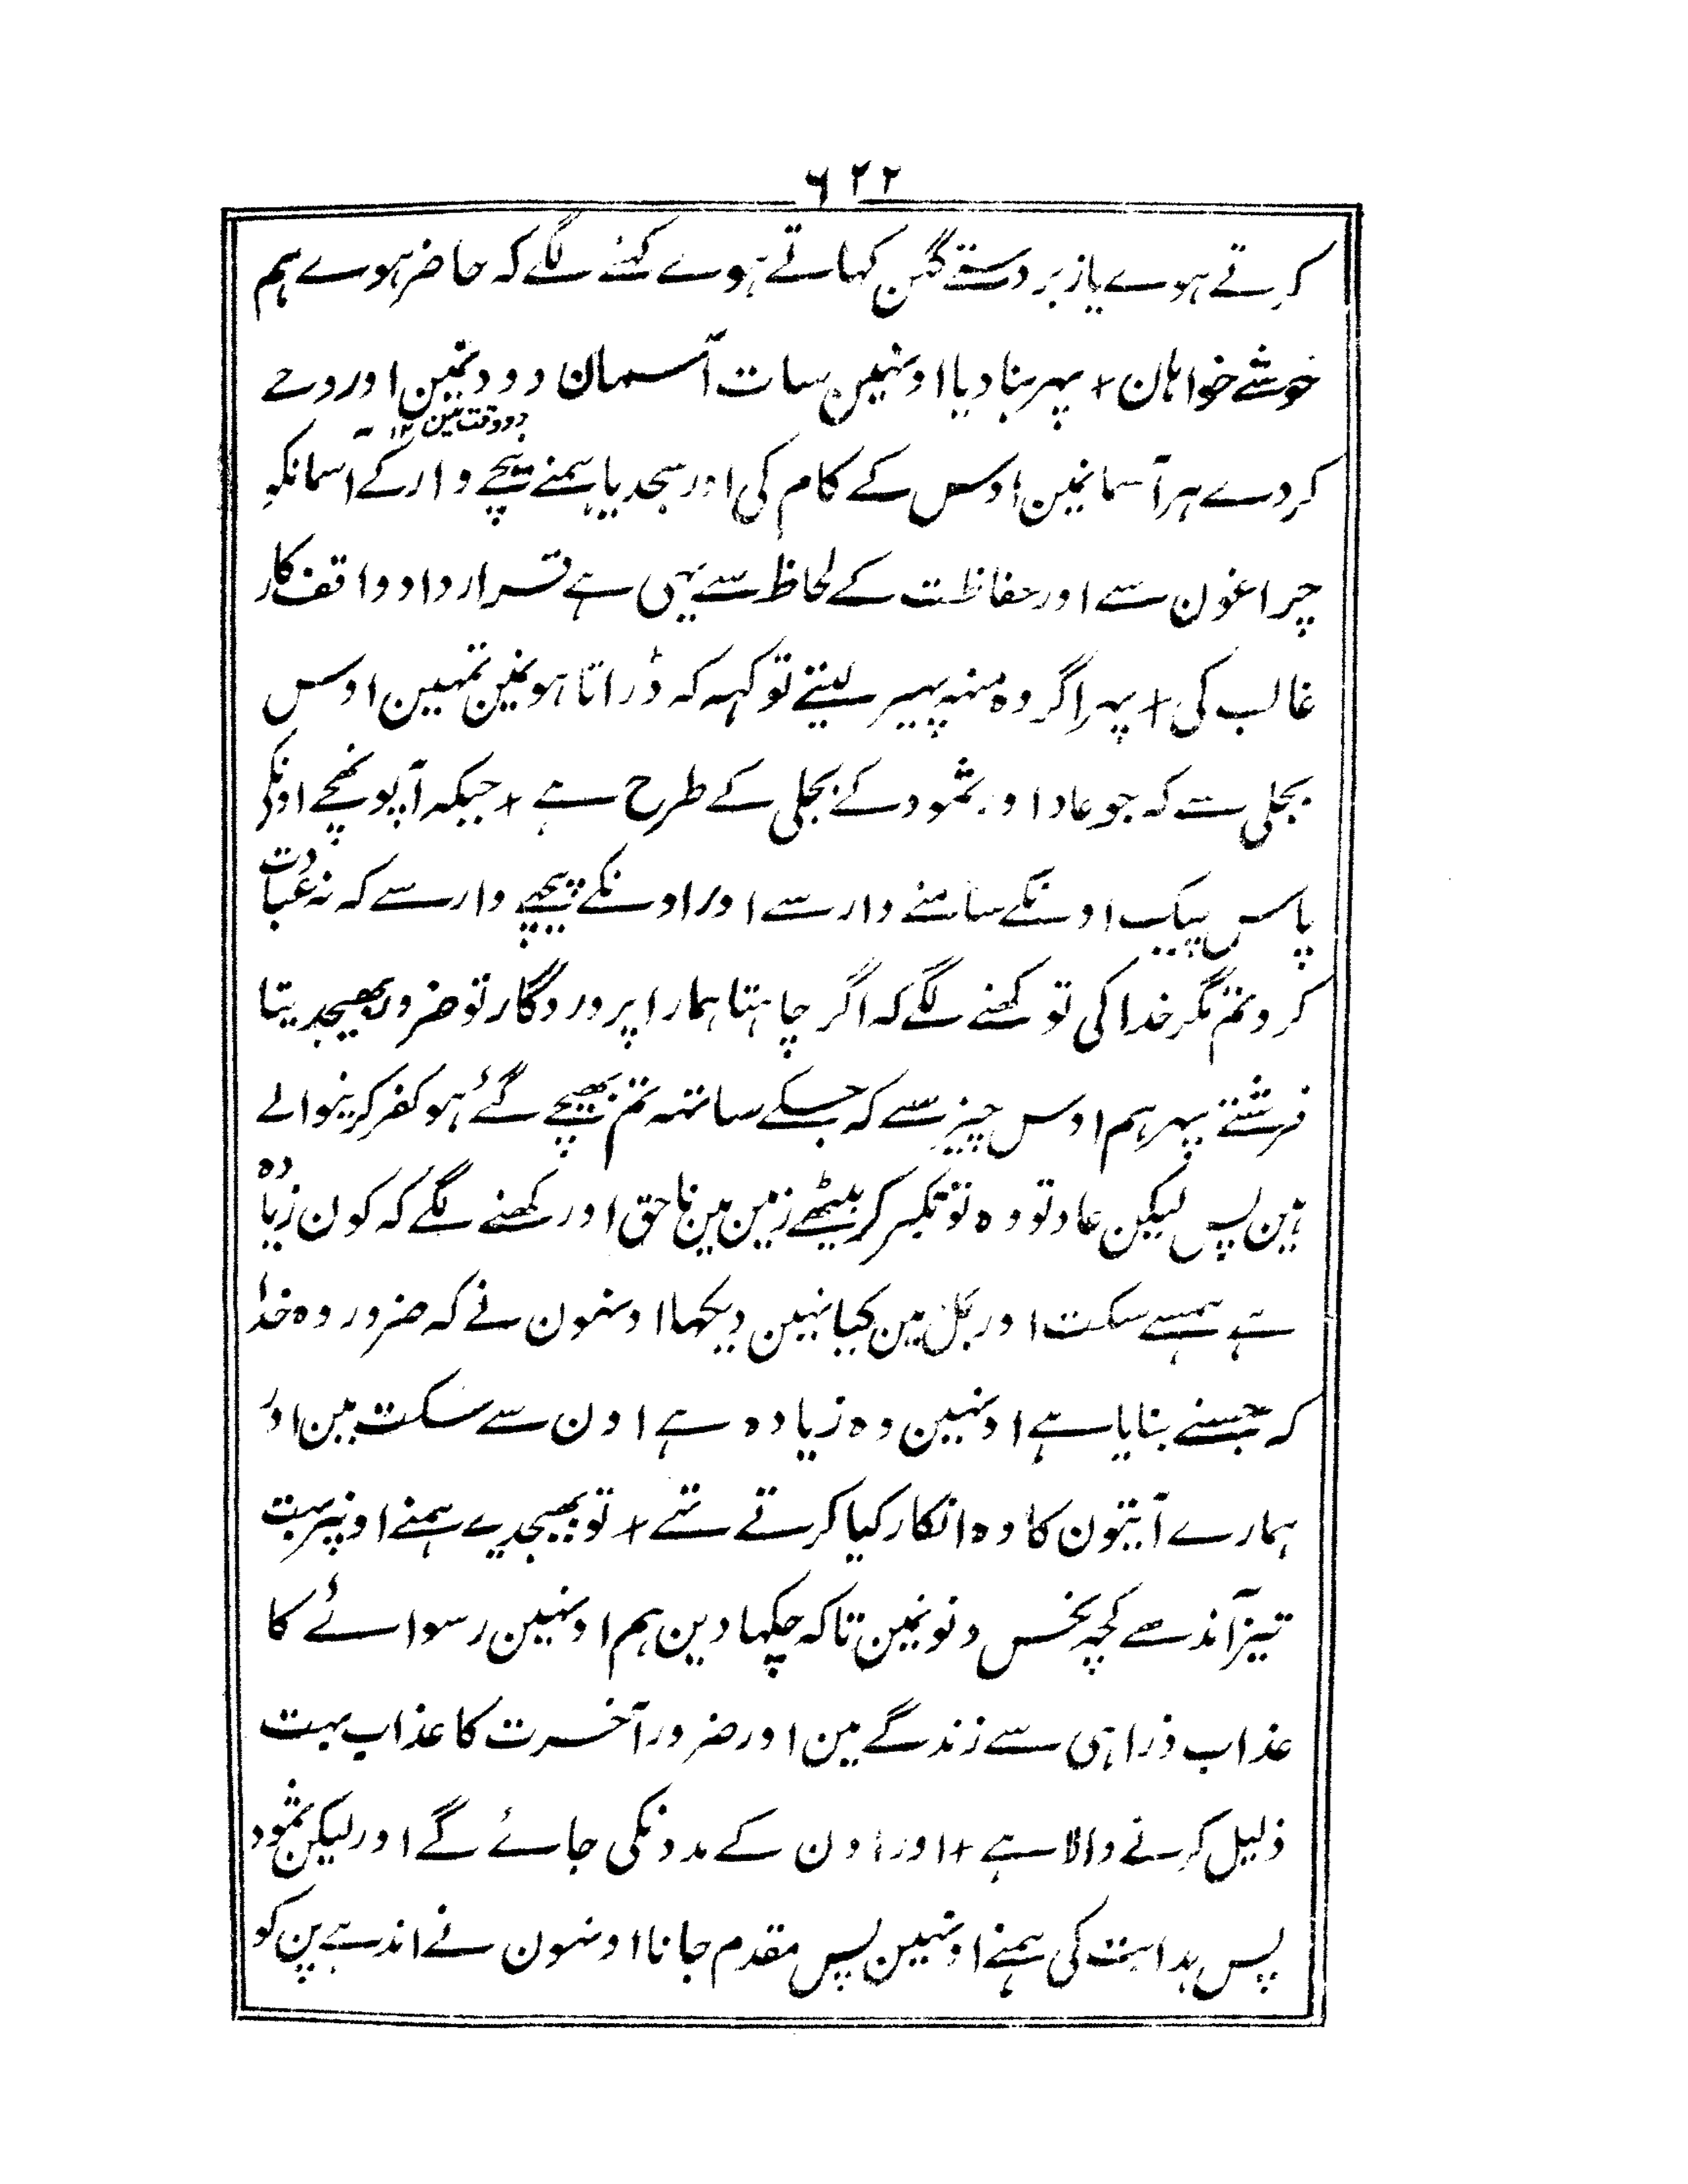 ۶۲۲
کرتے ہوے یا زبردستے گہن کہاتے ہوے کہنے لگے کہ حاضر ہوے ہم
خوشے خواہان + پہر بنا دیا اونہیں سات آسمان دو دنمین اور وحے
دو وقت مین ۱۲
کردے ہر آسمانمین اوس کے کام کی اور سجدیا ہمنے نیچے وار کے آسمانکو
چراغون سے اور حفاظت کے لحاظ سے یہی ہے قرارداد واقف کار
غالب کی + پہر اگر وہ منہ پہیر لیتے تو کہہ کہ ڈراتا ہونمین تمہین اوس
بجلی سے کہ جو عاد اور ثمود کے بجلی کے طرح ہے + جبکہ آپونچے اونکے
پاس پیک اونکے سامنے وار سے اور اونکے پیچھے وار سے کہ نہ عبادت
کرو تم مگر خدا کی تو کھنے لگے کہ اگر چاہتا ہمارا پروردگار تو ضرور بھیجدیتا
فرشتے پہر ہم اوس چیز سے کہ جسکے ساتھہ تم بھیجے گئے ہو کفر کرینوالے
ہین پس لیکن عاد تو وہ تو تکبر کر بیٹھے زمین مین ناحق اور کھنے لگے کہ کون زیادہ
ہے ہمسے سکت اور بل مین کیا نہین دیکہا اونہون نے کہ ضرور وہ خدا
کہ جسنے بنایا ہے اونہین وہ زیادہ ہے اون سے سکت مین اور
ہمارے آیتون کا وہ انکار کیا کرتے تہے + تو بھیجدیے ہمنے اونپر بہت
تیز آندہے کچہہ نحس دنونمین تاکہ چکہا دین ہم اونہین رسوائے کا
عذاب ذراہی سے زندگے مین اور ضرور آخرت کا عذاب بہت
ذلیل کرنے والا ہے + اور اون کے مدد نکی جائے گے اور لیکن ثمود
پس ہدایت کی ہمنے اونہین پس مقدم جانا اونہون نے اندہے پن کو